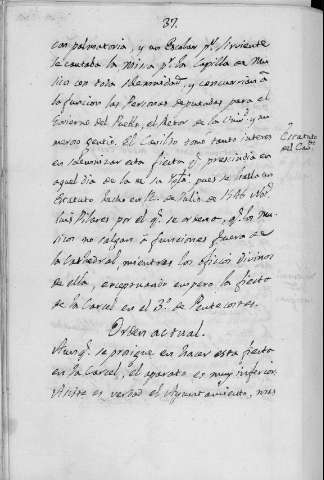 37.
con palmatoria, y un Escolar pr. sirviente
se cantaba la Misa pr. la Capilla de Mu-
sica con toda solemnidad, y concurrian à
la funcion las Personas deputadas para el
Govierno del Pueblo, el Retor de la Univd. y nu-
meroso gentio. El Cavildo tomò tanto interes
en solemnizar esta fiesta qe. prescindia en
aquel dia de la de su Ygla., pues se halla un
Estatuto hecho en 12. de Julio de 1566 Notº.
Luis Pilares por el qe. se ordenò, qe. los Mu-
sicos no salgan à funciones fuera de
la Cathedral, mientras los oficios Divinos
de ella, exceptuado empero la fiesta
de la Carcel en el 3º. de Pentecostes.
Estatuto
del Cavdº.
Orden actual.
Aunqe. se prosigue en hacer esta fiesta
en la Carcel, el aparato es muy inferior.
Asiste es verdad el Ayuntamiento, mas